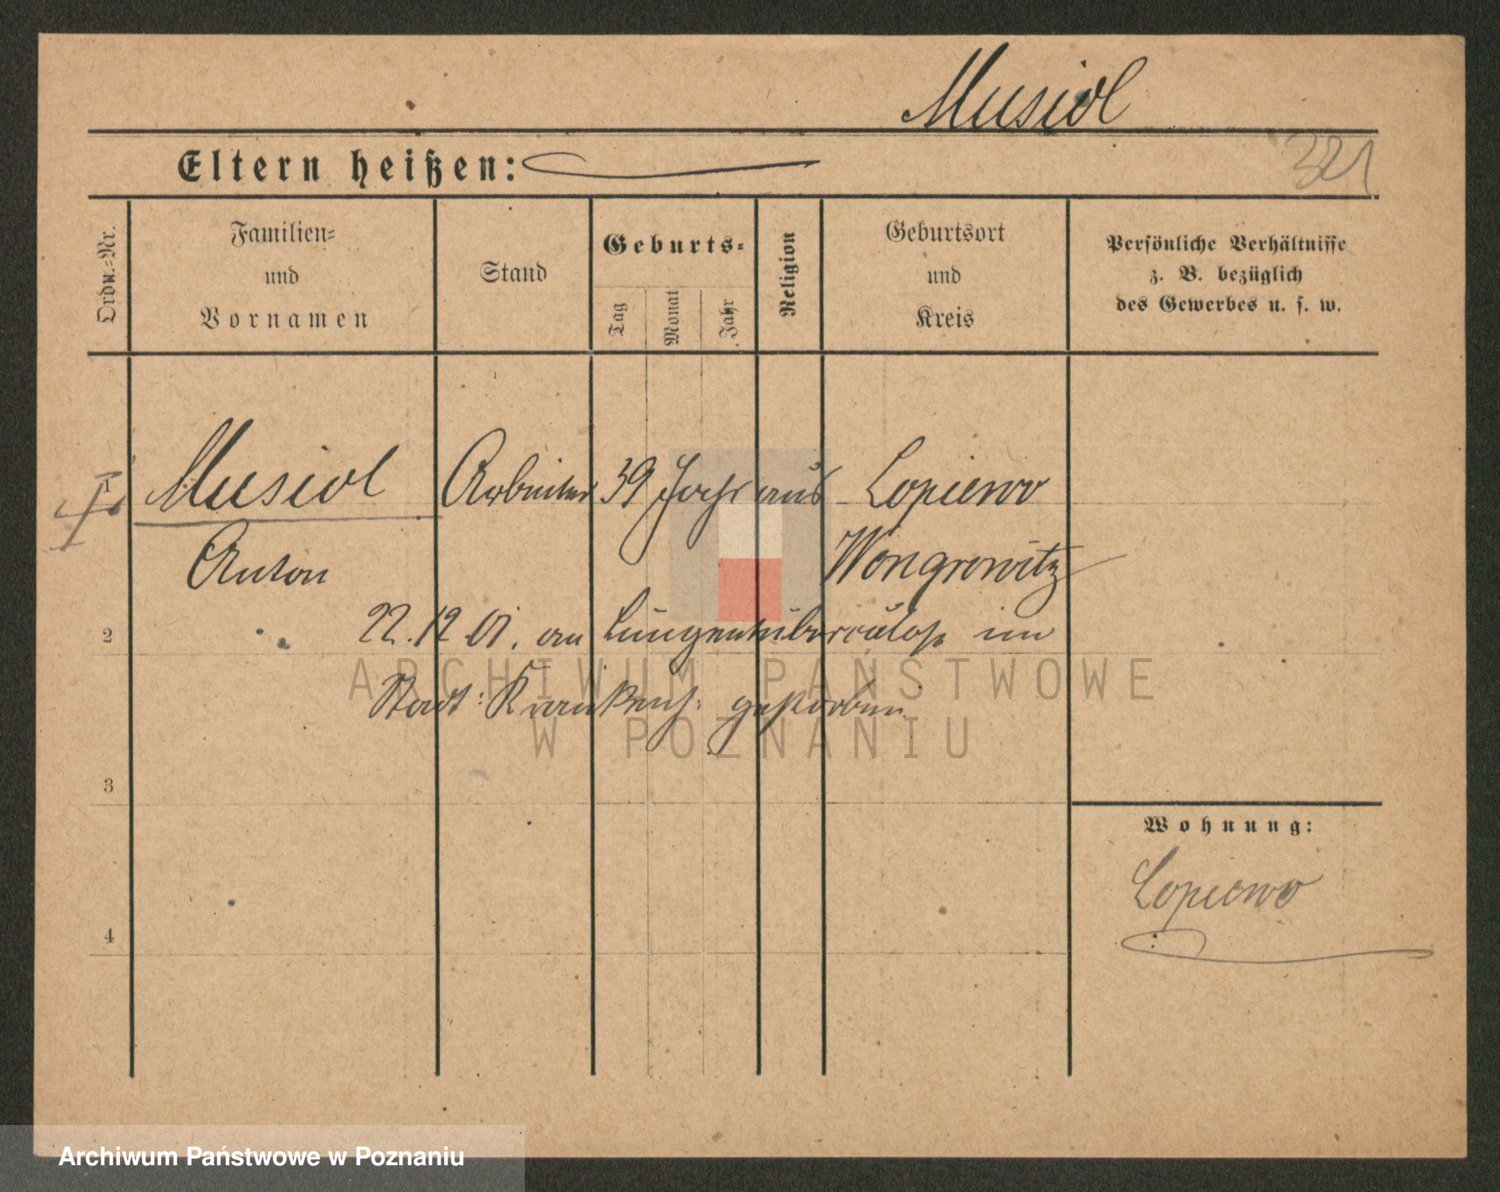 Musiol
Eltern heißen:
321
Ordn.=Nr.
Familien=
und
Vornamen
Stand
Geburts=
Tag
Monat
Jahr
Religion
Geburtsort
und
Kreis
Persönliche Verhältnisse
z. B. bezüglich
des Gewerbes u. s. w.
1 Musiol Arbeiter 39 Jahr aus Lopiewo
Anton Wongrowitz
2 22.12 01. an Lungentuberculose im
ARCHIWUM PAŃSTWOWE
Stadt: Krankenh: gestorben
W POZNANIU
3
Wohnung:
Lopiewo
4
Archiwum Państwowe w Poznaniu